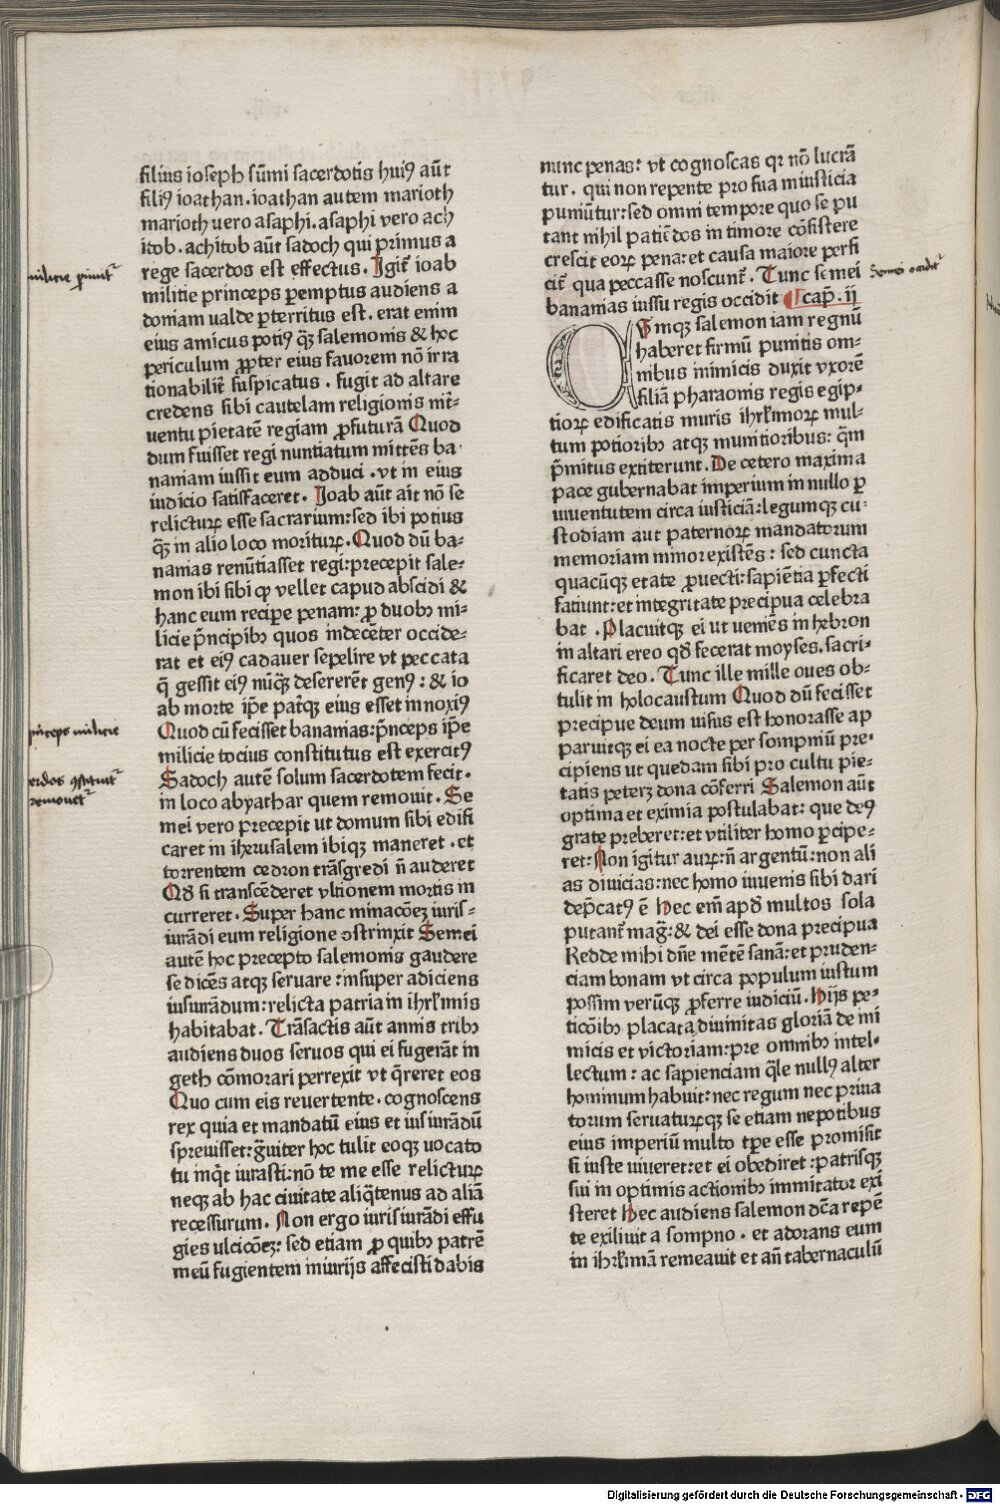 filius ioseph sūmi sacerdotis huiꝰ aūt
filiꝰ ioathan. ioathan autem marioth
marioth uero asaphi. asaphi vero ach
itob. achitob aūt sadoch qui primus a
rege sacerdos est effectus. Igit̄ ioab
militie princeps ꝑemptus audiens a
doniam ualde ꝑterritus est. erat enim
eius amicus potiꝰ q̄ꝫ salemonis & hoc
periculum ꝓpter eius fauorem nō irra
tionabilit̄ suspicatus. fugit ad altare
credens sibi cautelam religionis nit̄=
uentu pietatē regiam ꝓfuturā Quod
dum fuisset regi nuntiatum mittēs ba-
naniam iussit eum adduci. vt in eius
iudicio satisfaceret. Ioab aūt ait nō se
relicturꝝ esse sacrarium: sed ibi potius
q̄ꝫ in alio loco moriturꝝ. Quod dū ba-
nanias renūtiasset regi: precepit sale=
mon ibi sibi ꝙ vellet capud abscidi &
hanc eum recipe penam: ꝓ duobꝫ mi=
licie p̄ncipibꝫ quos indecēter occide=
rat et eiꝰ cadauer sepelire vt peccata
q̄ gessit eiꝰ nūq̄ꝫ desererēt genꝰ: & io
ab morte ip̄e patr̄qꝫ eius esset innoxiꝰ
Quod cū fecisset bananias: p̄nceps ip̄e
milicie tocius constitutus est exercitꝰ
Sadoch autē solum sacerdotem fecit.
in loco abyathar quem remouit. Se
mei vero precepit ut domum sibi edifi
caret in iherusalem ibiqꝫ maneret. et
torrentem cedron trāsgredi n̄ auderet
Qđ si transcēderet vltionem mortis in
curreret. Super hanc minacōeꝫ iuris=
iurādi eum religione ɔstrinxit Semei
autē hoc precepto salemonis gaudere
se dicēs atqꝫ seruare: insuper adiciens
iusiurādum: relicta patria in ihrl̄mis
habitabat. Trāsactis aūt annis tribꝫ
audiens duos seruos qui ei fugerāt in
geth cōmorari perrexit vt q̄reret eos
Quo cum eis reuertente. cognoscens
rex quia et mandatū eius et iusiurādū
spreuisset: g̃uiter hoc tulit eoqꝫ uocato
tu inq̇t iurasti: nō te me esse relicturꝝ
neqꝫ ab hac ciuitate aliq̄tenus ad aliā
recessurum. Non ergo iurisiurādi effu
gies ulcicōeꝫ: sed etiam ꝓ quibꝫ patrē
meū fugientem iniurijs affecisti dabis
nunc penas: vt cognoscas qꝛ nō lucrā
tur. qui non repente pro sua iniusticia
puniūtur: sed omni tempore quo se pu
tant nihil patiēdos in timore cōsistere
crescit eorꝝ pena: et causa maiore perfi
cit̄ qua peccasse noscunt̄. Tunc semei
bananias iussu regis occidit ¶cap̄. ij
Umqꝫ salemon iam regnū
haberet firmū punitis om=
nibus inimicis duxit vxorē
filiā pharaonis regis egip=
tiorꝝ edificatis muris ihrl̄morꝝ mul=
tum potioribꝫ atqꝫ munitioribus: q̄m
p̄mitus extiterunt. De cetero maxima
pace gubernabat imperium in nullo ꝑ
iuuentutem circa iusticiā: legumqꝫ cu-
stodiam aut paternorꝝ mandatorum
memoriam minor existēs: sed cuncta
quacūqꝫ etate ꝓuecti: sapiētia ꝑfecti
fatiunt: et integritate precipua celebra
bat. Placuitqꝫ ei ut ueniēs in hebron
in altari ereo qđ fecerat moyses. sacri-
ficaret deo. Tunc ille mille oues ob=
tulit in holocaustum Quod dū fecisset
precipue deum uisus est honorasse ap
paruitqꝫ ei ea nocte per sompniū pre-
cipiens ut quedam sibi pro cultu pie-
tatis peterꝫ dona cōferri Salemon aūt
optima et eximia postulabat: que deꝰ
grate preberet: et vtiliter homo ꝑcipe=
ret: Non igitur aurꝝ: n̄ argentū: non ali
as diuicias: nec homo iuuenis sibi dari
dep̄catꝰ ē Hec em̄ apđ multos sola
putant̄ mag̃: & dei esse dona precipua
Redde mihi dn̄e mētē sanā: et pruden=
ciam bonam vt circa populum iustum
possim verūqꝫ ꝓferre iudiciū. Hijs pe-
ticōibꝫ placata diuinitas gloriā de ini
micis et victoriam: pre omnibꝫ intel-
lectum: ac sapienciam q̄le nullꝰ alter
hominum habuit: nec regum nec priua
torum seruaturꝝqꝫ se etiam nepotibus
eius imperiū multo tp̄e esse promisit
si iuste uiueret: et ei obediret: patrisqꝫ
sui in optimis actionibꝫ immitator exi
steret Hec audiens salemon dc̄a repē
te exiliuit a sompno. et adorans eum
in ihrl̄mā remeauit et an̄ tabernaculū
princeps milicie
remouet᷑
Semei occidit᷑
Digitalisierung gefördert durch die Deutsche Forschungsgemeinschaft - DFG